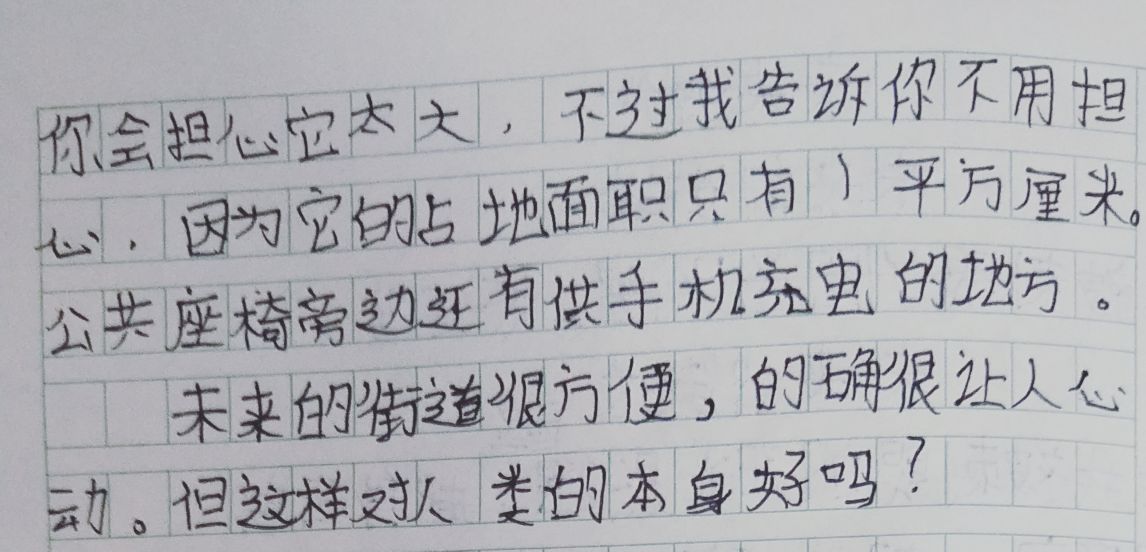 你会担心它太大，不过我告诉你不用担
心，因为它的占地面职只有1平方厘米。
公共座椅旁边还有供手机充电的地方。
未来的街道很方便，的确很让人心
动。但这样对人类的本身好吗？